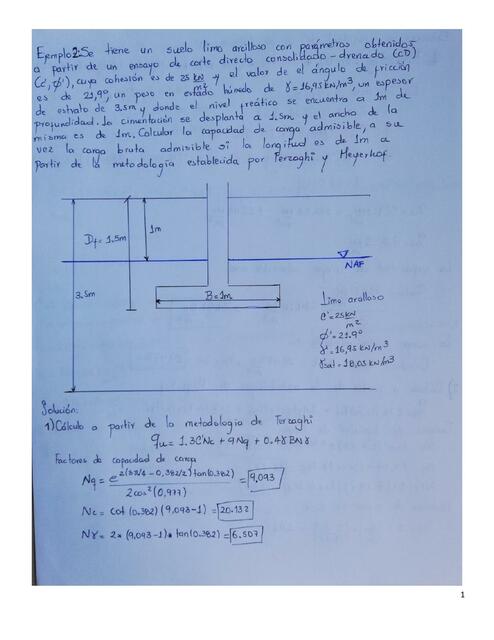 Ejemplo2: Se tiene un suelo limo arcilloso con parámetros obtenidos
a partir de un ensayo de corte directo consolidado - drenado (CD)
(c', ϕ'), cuya cohesión es de 25 kN/m² y el valor de el ángulo de fricción
es de 21,9º, un peso en estado húmedo de γ = 16,95 kN/m³, un espesor
de estrato de 3.5m y donde el nivel freático se encuentra a 1m de
profundidad. La cimentación se desplanta a 1.5m y el ancho de la
misma es de 1m. Calcular la capacidad de carga admisible, a su
vez la carga bruta admisible si la longitud es de 1m a
partir de la metodología establecida por Terzaghi y Meyerhof.
1m
Df = 1.5m
NAF
3.5m
B = 1m
Limo arcilloso
c' = 25 kN/m²
ϕ' = 21.9º
γ' = 16,95 kN/m³
γsat = 18,05 kN/m³
Solución:
1) Cálculo a partir de la metodología de Terzaghi
qu = 1.3C'Nc + qNq + 0.4γBNγ
Factores de capacidad de carga
Nq = e^2(3π/4 - 0,382/2)tan(0.382) / 2cos²(0,977) = 9,093
Nc = cot(0.382)(9,093-1) = 20.132
Nγ = 2*(9,093-1)*tan(0.382) = 6.507
1